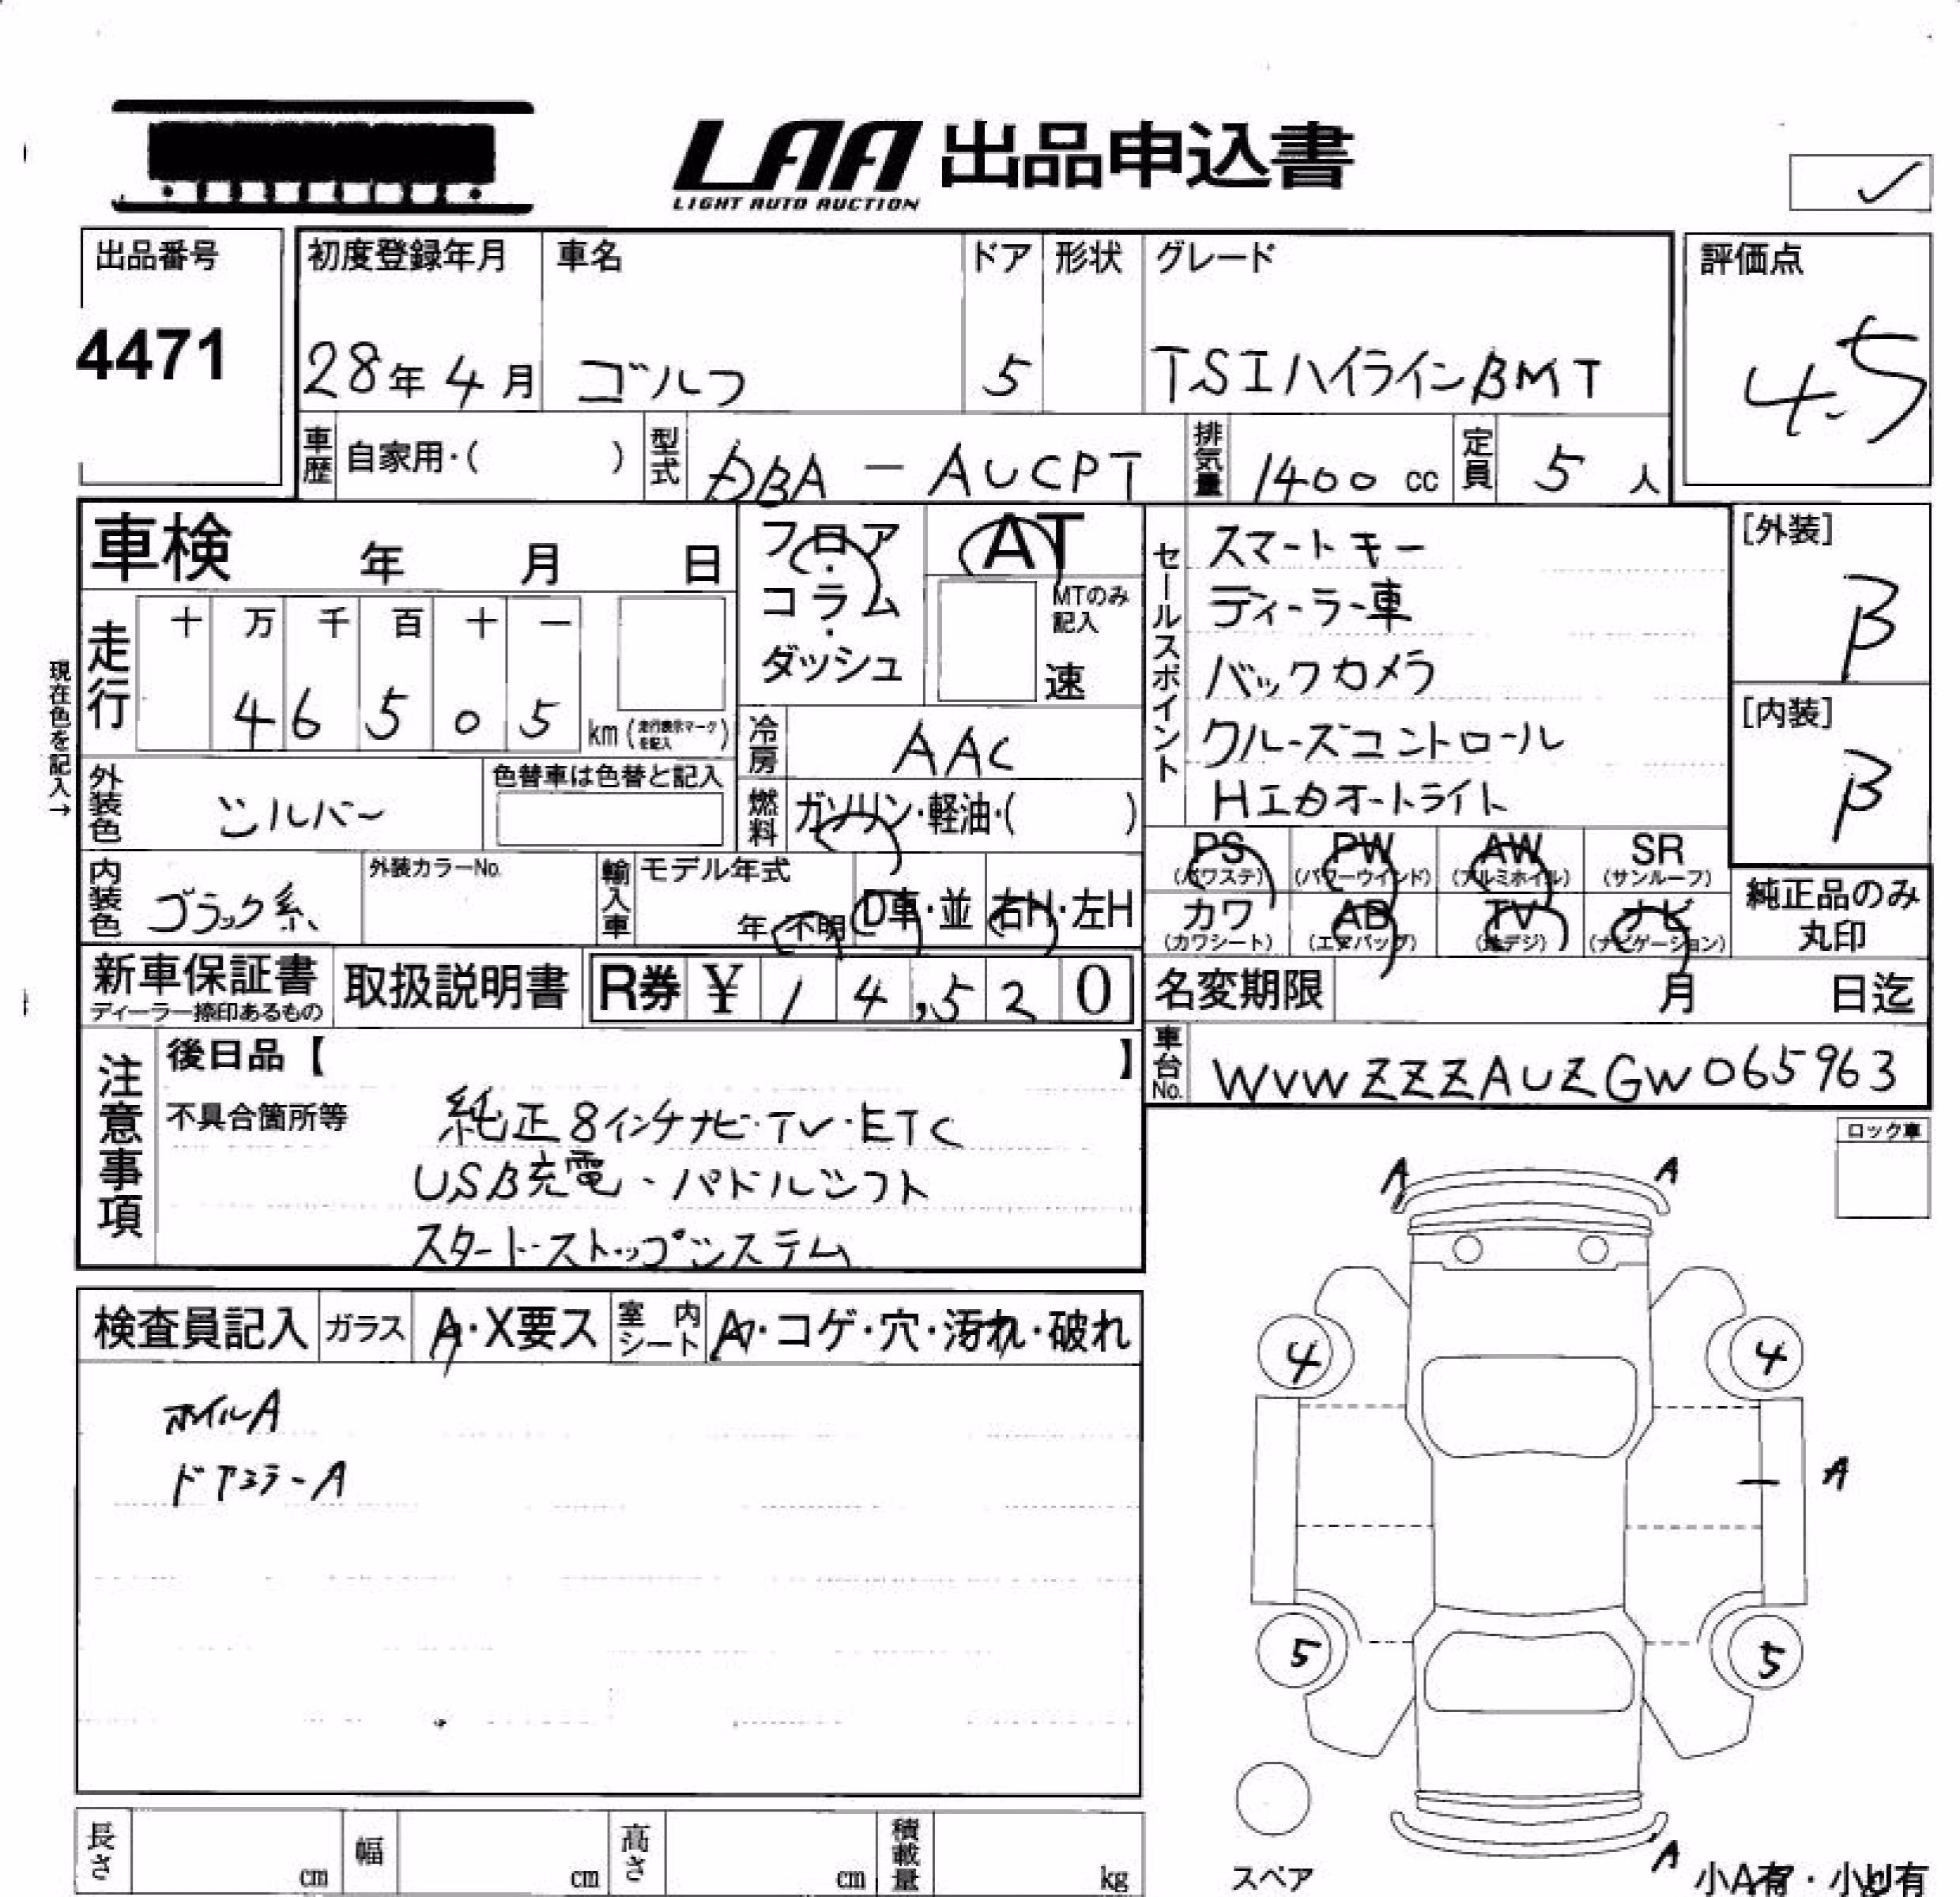 LAA 出品申込書
LIGHT AUTO AUCTION
出品番号
4471
初度登録年月
28年4月
車名
ゴルフ
ドア
5
形状
グレード
TSIハイラインBMT
評価点
4.5
車歴 自家用・( )
型式 DBA-AUCPT
排気量 1400 cc
定員 5 人
車検 年 月 日
フロア・コラム・ダッシュ
AT
MTのみ記入
速
セールスポイント
スマートキー
ディーラー車
バックカメラ
クルーズコントロール
HIDオートライト
[外装]
B
[内装]
B
現在色を記入→
走行
十 万 千 百 十 一
4 6 5 0 5
km (走行表示マークを記入)
冷房 AAC
外装色 シルバー
色替車は色替と記入
燃料 ガソリン・軽油・( )
PS (パワステ)
PW (パワーウインド)
AW (アルミホイル)
SR (サンルーフ)
カワ (カワシート)
AB (エアバッグ)
TV (地デジ)
ナビ (ナビゲーション)
純正品のみ丸印
内装色 ブラック系
外装カラーNo.
輸入車
モデル年式
年 不明
D車・並
右H・左H
新車保証書
ディーラー捺印あるもの
取扱説明書
R券 ¥ 14,520
名変期限 月 日迄
車台No. WVWZZZAUZGW065963
注意事項
後日品【 】
不具合箇所等
純正8インチナビ・TV・ETC
USB充電・パドルシフト
スタート・ストップシステム
ロック車
A A
4 4
A
5 5
A
スペア
小A有・小U有
検査員記入
ガラス A・X要ス
室内シート A・コゲ・穴・汚れ・破れ
ホイルA
ドアミラーA
長さ cm
幅 cm
高さ cm
積載量 kg